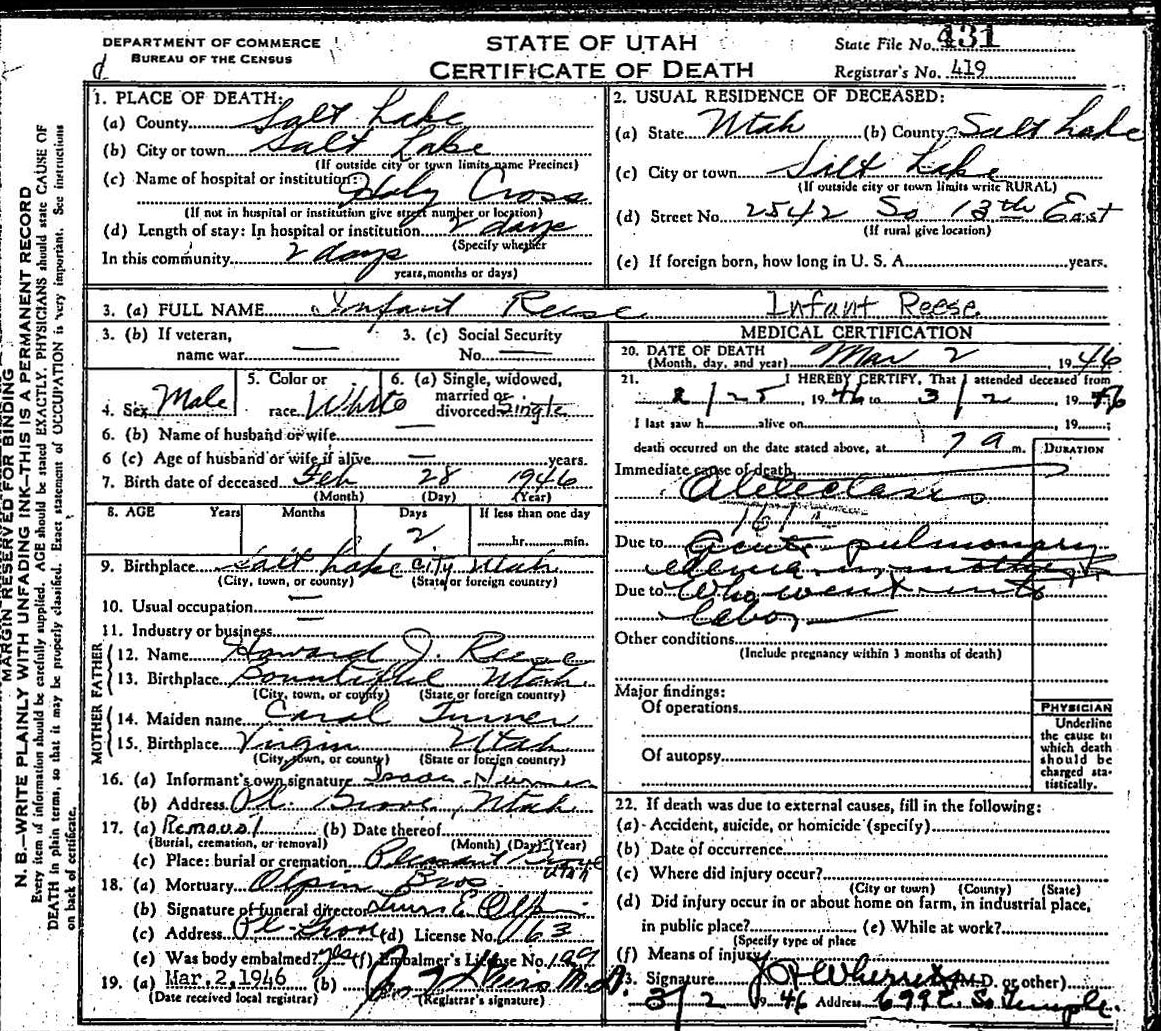 DEPARTMENT OF COMMERCE
BUREAU OF THE CENSUS
STATE OF UTAH
CERTIFICATE OF DEATH
State File No. 431
Registrar's No. 419
MARGIN RESERVED FOR BINDING
N. B.—WRITE PLAINLY WITH UNFADING INK—THIS IS A PERMANENT RECORD
Every item of information should be carefully supplied. AGE should be stated EXACTLY. PHYSICIANS should state CAUSE OF
DEATH in plain terms, so that it may be properly classified. Exact statement of OCCUPATION is very important. See instructions
on back of certificate.
1. PLACE OF DEATH:
(a) County Salt Lake
(b) City or town Salt Lake
(If outside city or town limits name Precinct)
(c) Name of hospital or institution: Holy Cross
(If not in hospital or institution give street number or location)
(d) Length of stay: In hospital or institution 2 days
(Specify whether
In this community 2 days
years, months or days)
2. USUAL RESIDENCE OF DECEASED:
(a) State Utah (b) County Salt Lake
(c) City or town Salt Lake
(If outside city or town limits write RURAL)
(d) Street No 2542 So 13th East
(If rural give location)
(e) If foreign born, how long in U. S. A. years.
3. (a) FULL NAME Infant Reese Infant Reese
3. (b) If veteran, 3. (c) Social Security
name war — No —
4. Sex Male
5. Color or
race White
6. (a) Single, widowed,
married or
divorced Single
6. (b) Name of husband or wife —
6 (c) Age of husband or wife if alive — years.
7. Birth date of deceased Feb 28 1946
(Month) (Day) (Year)
8. AGE Years Months Days If less than one day
2 hr. min.
9. Birthplace Salt Lake City Utah
(City, town, or county) (State or foreign country)
10. Usual occupation —
11. Industry or business
MOTHER FATHER
12. Name Howard J. Reese
13. Birthplace Bountiful Utah
(City, town, or county) (State or foreign country)
14. Maiden name Carol Turner
15. Birthplace Virgin Utah
(City, town, or county) (State or foreign country)
16. (a) Informant's own signature Isaac Turner
(b) Address Pl. Grove, Utah
17. (a) Removal (b) Date thereof
(Burial, cremation, or removal) (Month) (Day) (Year)
(c) Place: burial or cremation Pleasant Grove
Utah
18. (a) Mortuary Olpin Bros
(b) Signature of funeral director E. Olpin
(c) Address Pl. Grove (d) License No. 163
(e) Was body embalmed? yes (f) Embalmer's License No. 199
19. (a) Mar. 2, 1946 (b) M.D.
(Date received local registrar) (Registrar's signature)
MEDICAL CERTIFICATION
20. DATE OF DEATH
(Month, day, and year) Mar 2 1946
21. I HEREBY CERTIFY, That I attended deceased from
2/25, 1946 to 3/2 1946
I last saw h alive on , 19 ;
death occurred on the date stated above, at 7 a m.
DURATION
Immediate cause of death
Atelectasis
161a
Due to Acute pulmonary
edema in mother
Due to Who went into
labor
Other conditions
(Include pregnancy within 3 months of death)
Major findings:
Of operations
Of autopsy
PHYSICIAN
Underline
the cause to
which death
should be
charged sta-
tistically.
22. If death was due to external causes, fill in the following:
(a) Accident, suicide, or homicide (specify)
(b) Date of occurrence
(c) Where did injury occur?
(City or town) (County) (State)
(d) Did injury occur in or about home on farm, in industrial place,
in public place? (e) While at work?
(Specify type of place
(f) Means of injury
23. Signature (M.D. or other)
3/2 1946 Address 699 E. So. Temple.